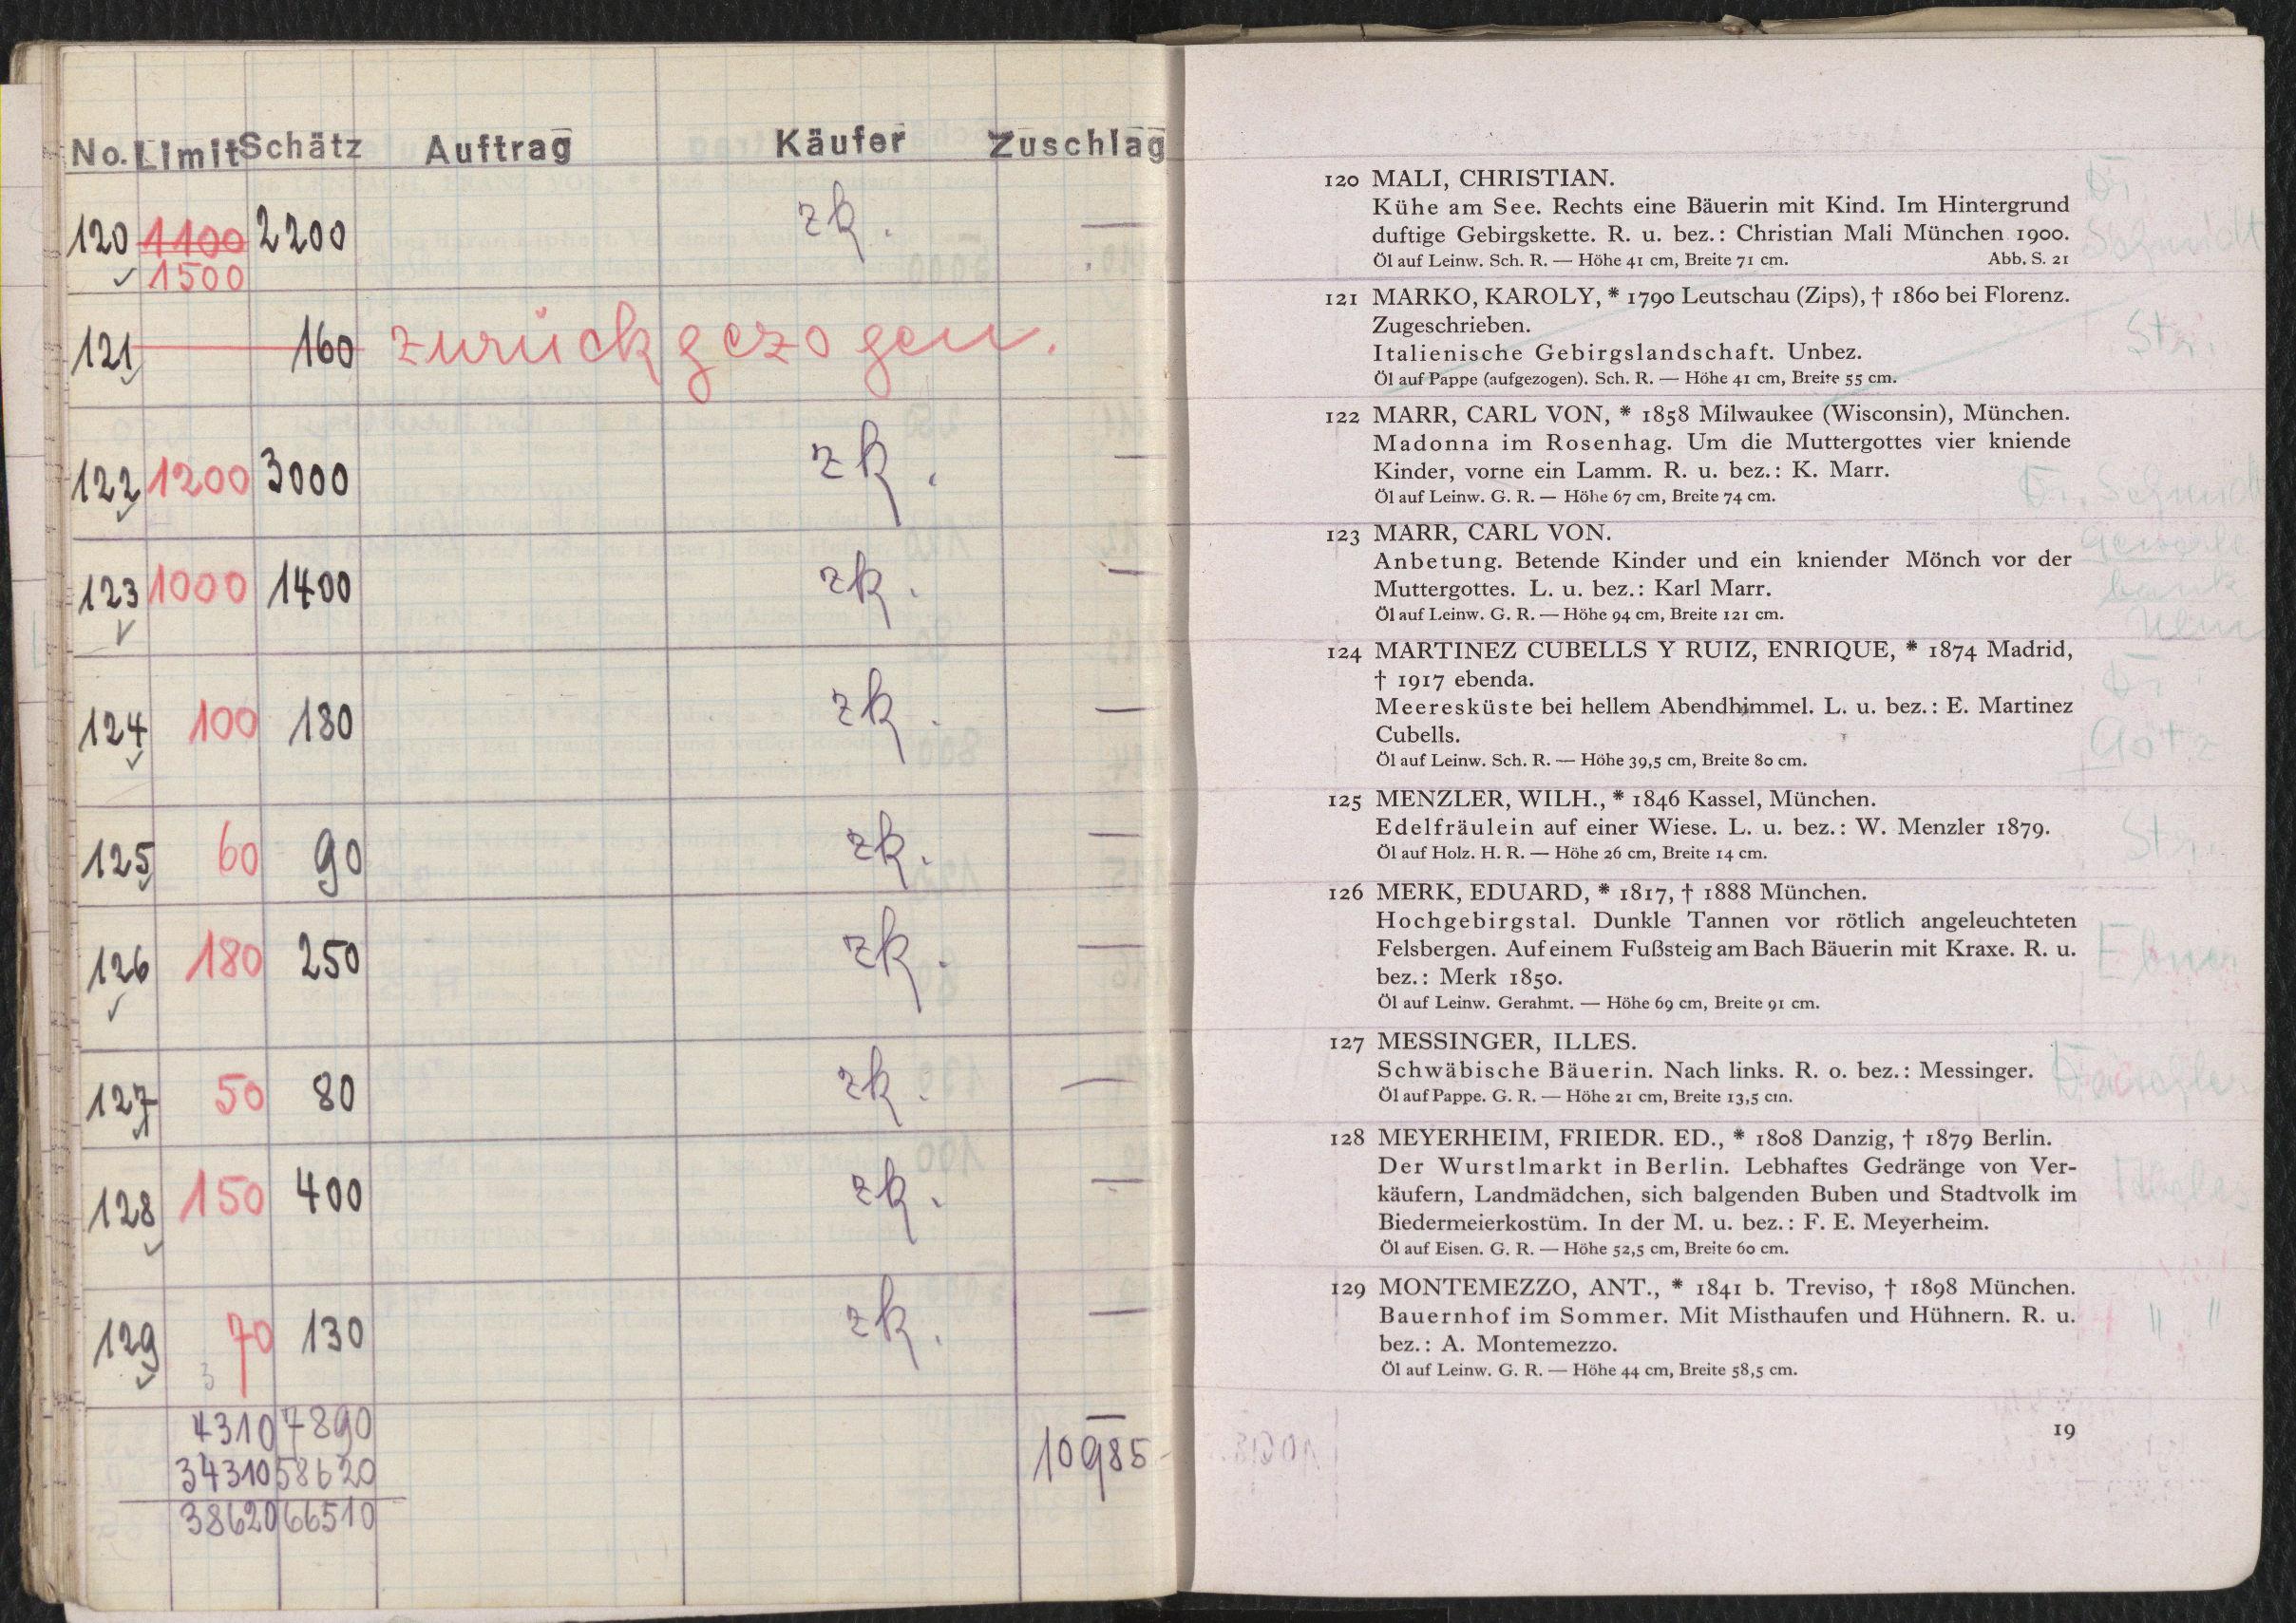 No. Limit Schätz Auftrag Käufer Zuschlag
120 1100 2200 zk. —
1500
121 160 zurückgezogen.
122 1200 3000 zk. —
123 1000 1400 zk. —
124 100 180 zk. —
125 60 90 zk. —
126 180 250 zk. —
127 50 80 zk. —
128 150 400 zk. —
129 70 130 zk. —
3
4310 7890 —
34310 58620 10985
38620 66510
120 MALI, CHRISTIAN.
Kühe am See. Rechts eine Bäuerin mit Kind. Im Hintergrund
duftige Gebirgskette. R. u. bez.: Christian Mali München 1900.
Öl auf Leinw. Sch. R. — Höhe 41 cm, Breite 71 cm. Abb. S. 21
Dr.
Schmidt
121 MARKO, KAROLY, * 1790 Leutschau (Zips), † 1860 bei Florenz.
Zugeschrieben.
Italienische Gebirgslandschaft. Unbez.
Öl auf Pappe (aufgezogen). Sch. R. — Höhe 41 cm, Breite 55 cm.
122 MARR, CARL VON, * 1858 Milwaukee (Wisconsin), München.
Madonna im Rosenhag. Um die Muttergottes vier kniende
Kinder, vorne ein Lamm. R. u. bez.: K. Marr.
Öl auf Leinw. G. R. — Höhe 67 cm, Breite 74 cm.
Dr. Schmidt
123 MARR, CARL VON.
Anbetung. Betende Kinder und ein kniender Mönch vor der
Muttergottes. L. u. bez.: Karl Marr.
Öl auf Leinw. G. R. — Höhe 94 cm, Breite 121 cm.
bank
124 MARTINEZ CUBELLS Y RUIZ, ENRIQUE, * 1874 Madrid,
† 1917 ebenda.
Meeresküste bei hellem Abendhimmel. L. u. bez.: E. Martinez
Cubells.
Öl auf Leinw. Sch. R. — Höhe 39,5 cm, Breite 80 cm.
Dr.
Götz
125 MENZLER, WILH., * 1846 Kassel, München.
Edelfräulein auf einer Wiese. L. u. bez.: W. Menzler 1879.
Öl auf Holz. H. R. — Höhe 26 cm, Breite 14 cm.
126 MERK, EDUARD, * 1817, † 1888 München.
Hochgebirgstal. Dunkle Tannen vor rötlich angeleuchteten
Felsbergen. Auf einem Fußsteig am Bach Bäuerin mit Kraxe. R. u.
bez.: Merk 1850.
Öl auf Leinw. Gerahmt. — Höhe 69 cm, Breite 91 cm.
127 MESSINGER, ILLES.
Schwäbische Bäuerin. Nach links. R. o. bez.: Messinger.
Öl auf Pappe. G. R. — Höhe 21 cm, Breite 13,5 cm.
128 MEYERHEIM, FRIEDR. ED., * 1808 Danzig, † 1879 Berlin.
Der Wurstlmarkt in Berlin. Lebhaftes Gedränge von Ver-
käufern, Landmädchen, sich balgenden Buben und Stadtvolk im
Biedermeierkostüm. In der M. u. bez.: F. E. Meyerheim.
Öl auf Eisen. G. R. — Höhe 52,5 cm, Breite 60 cm.
129 MONTEMEZZO, ANT., * 1841 b. Treviso, † 1898 München.
Bauernhof im Sommer. Mit Misthaufen und Hühnern. R. u.
bez.: A. Montemezzo.
Öl auf Leinw. G. R. — Höhe 44 cm, Breite 58,5 cm.
" "
19